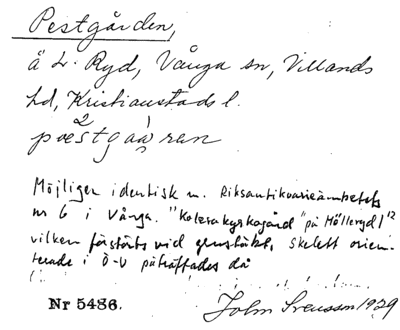 Pestgården,
å L. Ryd, Vånga sn, Villands
hd, Kristianstads l.
pæstgaaran
Möjligen identisk m. Riksantikvarieämbetets
nr 6 i Vånga. "Kolerakyrkogård" på Mölleryd 1/2
vilken förstörts vid grustäkt, skelett orien-
terade i Ö-V påträffades då
Nr 5486.
John Svensson 1929